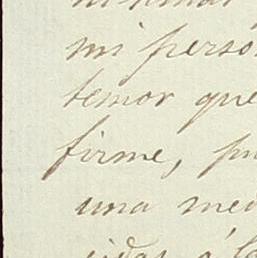 mi perso
temor que
firme, pu
una med